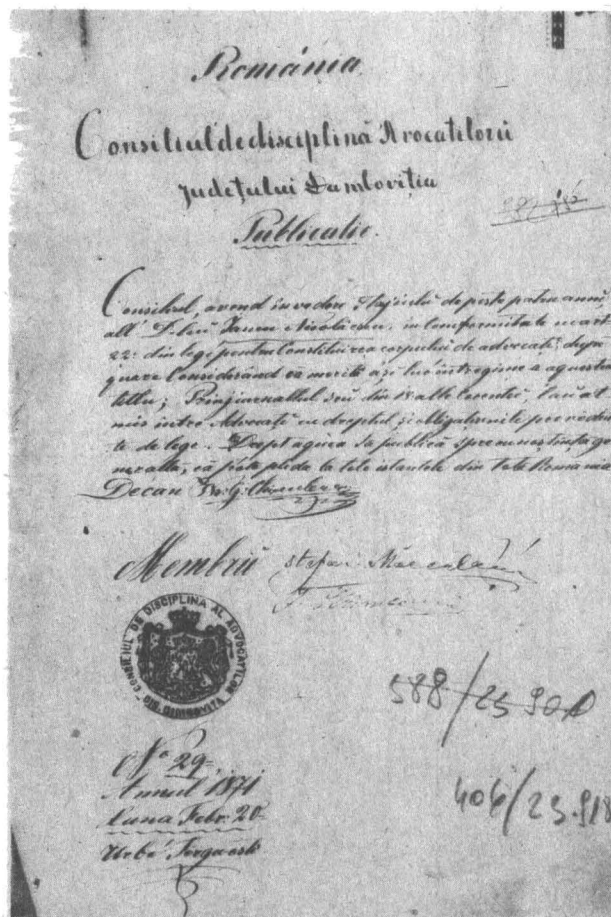 România
Consiliul de disciplină Avocatilorŭ
Județului Damboviția
Publicatie.
Consiliul, avend in vedere stagiulŭ de peste patru anni
all' D-lui Iancu Nicolăescu, in conformitate cu art
22: din lege pentru Constituirea corpului de advocati, după
quare Considerând că merită a și lua instregime a aquestui
titlu; Prin giurnallul seu din 18 alle curentei, l'au ad
mis intre Advocați cu dreptul și obligatiunile prevedu
te de lege. Drept aquea se publică spre cunoștința ge
neralla, că póte pleda la tóte istantele din Tota România
Decan
Membrii Stefan
CONSILIUL DE DISCIPLINA AL ADVOCAȚILOR
DIS. DIMBOVITA
No 29.
Annul 1871
Luna Febr. 20
588/25 901
406/23.918